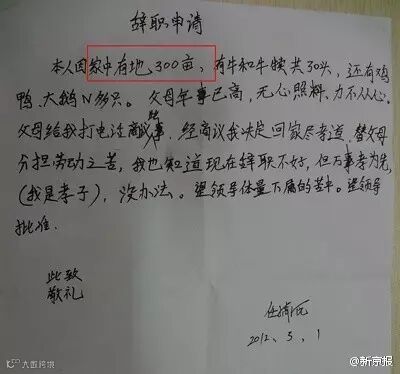 辞职申请
本人因家中有地300亩,有牛和牛犊共30头,还有鸡
鸭、大鹅N多只。父母年事已高,无心照料,力不从心。
父母给我打电话商议事,经商议我决定回家尽孝道,替父母
分担劳动之苦,我也知道现在辞职不好,但万事孝为先,
(我是孝子),没办法。望领导体量下属的苦中。望领导
批准.
此致
敬礼
2012、5、1
大数跨境
@新京报